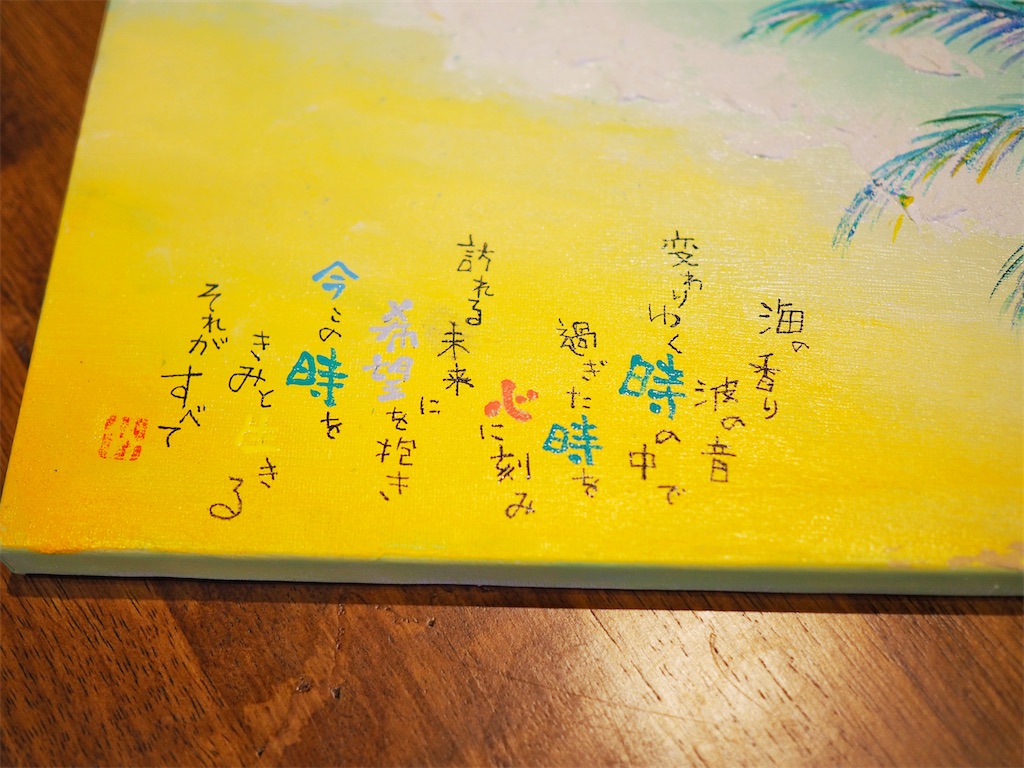 海の香り
波の音
変わりゆく時の中で
過ぎた時を
心に刻み
訪れる未来に
希望を抱き
今この時を
きみと生きる
それがすべて